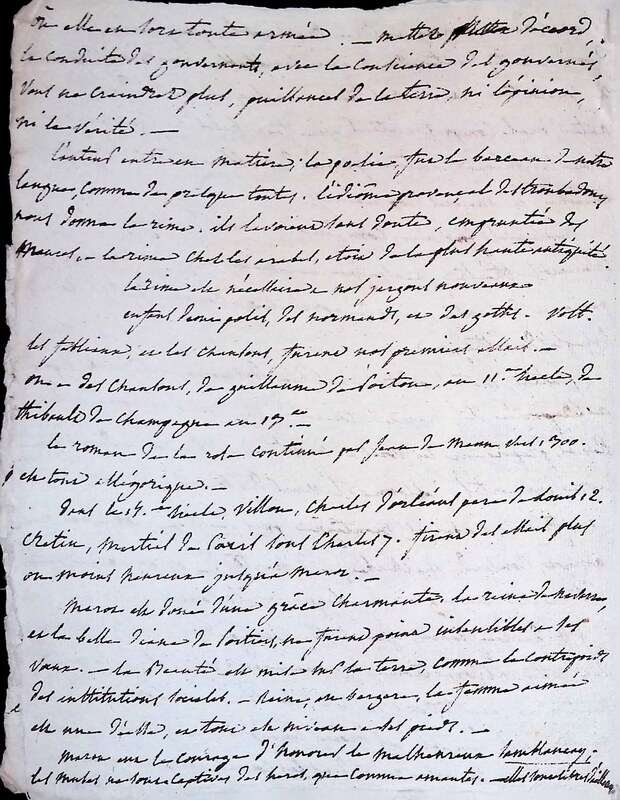 elle en sort toute armée. — mettez d'accord,
la conduite des gouvernants, avec la conscience des gouvernés,
vous ne craindrez plus, puissances de la terre, ni l'opinion,
ni la vérité. —
entre en matière; la poésie, fut le berceau de notre
langue comme de presque toutes. l'idiôme provençal des troubadours
nous donna la rime. ils l'avaient sans doute, empruntée des
maures, la rime chez les arabes, étoit de la plus haute antiquité.
la rime est nécessaire à nos jargons nouveaux
enfans demi polis, des normands, et des goths. — Volt.
les fabliaux, et les chansons, furent nos premiers essais. —
on a des chansons, de guillaume de Poitou, au 11.me siècle, de
thibault de champagne au
le roman de la rose continué par Jean de Meun vers 1300.
est tout allégorique. —
dans le siècle Villon, Charles d'orléans père de Louis 12.
Crétin, martial de Paris sous Charles 7. firent des essais plus
ou moins heureux jusqu'à marot. —
marot est doué d'une grâce charmante, la reine de navarre,
et la belle diane de Poitiers, ne furent point insensibles à ses
vœux. — la Beauté est mise sur la terre, comme le contrepoids
des institutions sociales. — Reine, ou bergère, la femme aimée
est une déesse, et tout est de niveau à ses pieds. —
marot eut le courage d'honorer le malheureux Samblançay. —
les muses ne sont captives des héros, que comme amantes. — elles sont libres